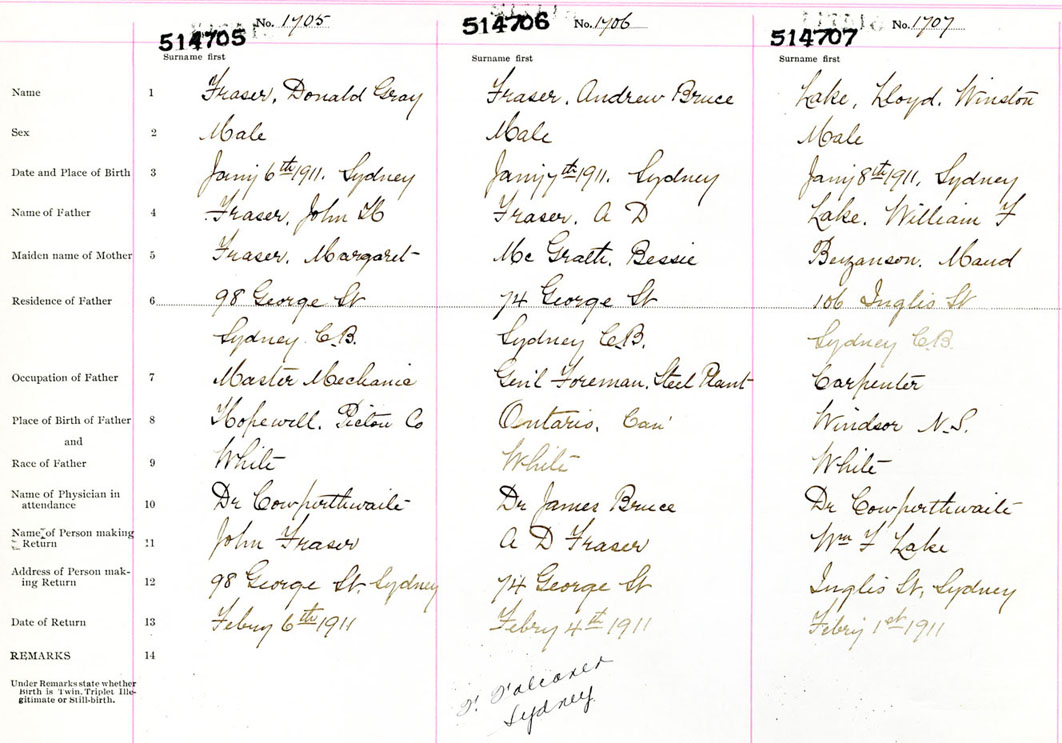 No. 1705 No. 1706 No. 1707
514705 514706 514707
Surname first Surname first Surname first
Name 1 Fraser, Donald Gray Fraser, Andrew Bruce Lake, Lloyd. Winston
Sex 2 Male Male Male
Date and Place of Birth 3 Jany 6th 1911. Sydney Jany 7th 1911. Sydney Jany 8th 1911, Sydney
Name of Father 4 Fraser, John H Fraser, A D Lake. William F
Maiden name of Mother 5 Fraser, Margaret Mc Grath, Bessie Bezanson, Maud
Residence of Father 6 98 George St 74 George St 106 Inglis St
Sydney C.B. Sydney C.B. Sydney C.B.
Occupation of Father 7 Master Mechanic Genl Foreman, Steel Plant Carpenter
Place of Birth of Father 8 Hopewell, Pictou Co Ontario, Can' Windsor N.S.
and
Race of Father 9 White White White
Name of Physician in
attendance 10 Dr Cowperthwaite Dr James Bruce Dr Cowperthwaite
Name of Person making
Return 11 John Fraser A D Fraser Wm F Lake
Address of Person mak-
ing Return 12 98 George St. Sydney 74 George St Inglis St, Sydney
Date of Return 13 Febry 6th 1911 Febry 4th 1911 Febry 1st 1911
REMARKS 14
Under Remarks state whether
Birth is Twin, Triplet Ille-
gitimate or Still-birth.
Falconer
Sydney